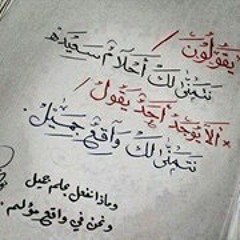 يقولون /
نتمنى لك أحلام سعيده
* ألا يوجد أحد يقول /
نتمنى لك واقع جميل.
وماذا نفعل بحلم جميل
ونحن في واقع مؤلم.